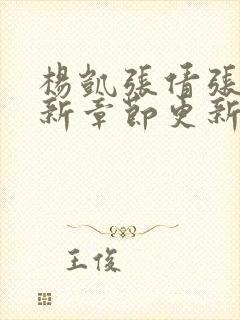 楊凱張倩張
新章節更新
王俊